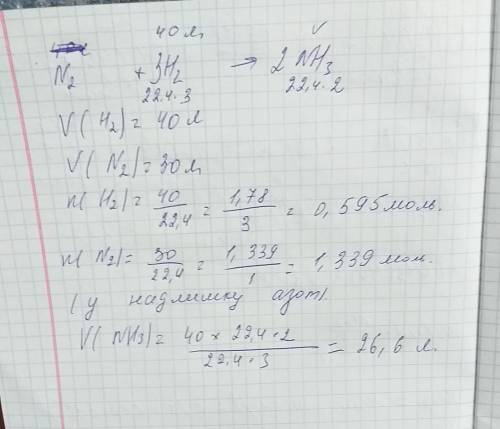 40 л
V
N₂ + 3H₂ → 2 NH₃
22,4·3 22,4·2
V( H₂) = 40 л
V( N₂) = 30 л
n( H₂) = 40/22,4 = 1,78/3 = 0,595 моль.
n( N₂) = 30/22,4 = 1,339/1 = 1,339 мол.
( у надлишку азот).
V( NH₃) = 40 × 22,4·2 / 22,4·3 = 26,6 л.